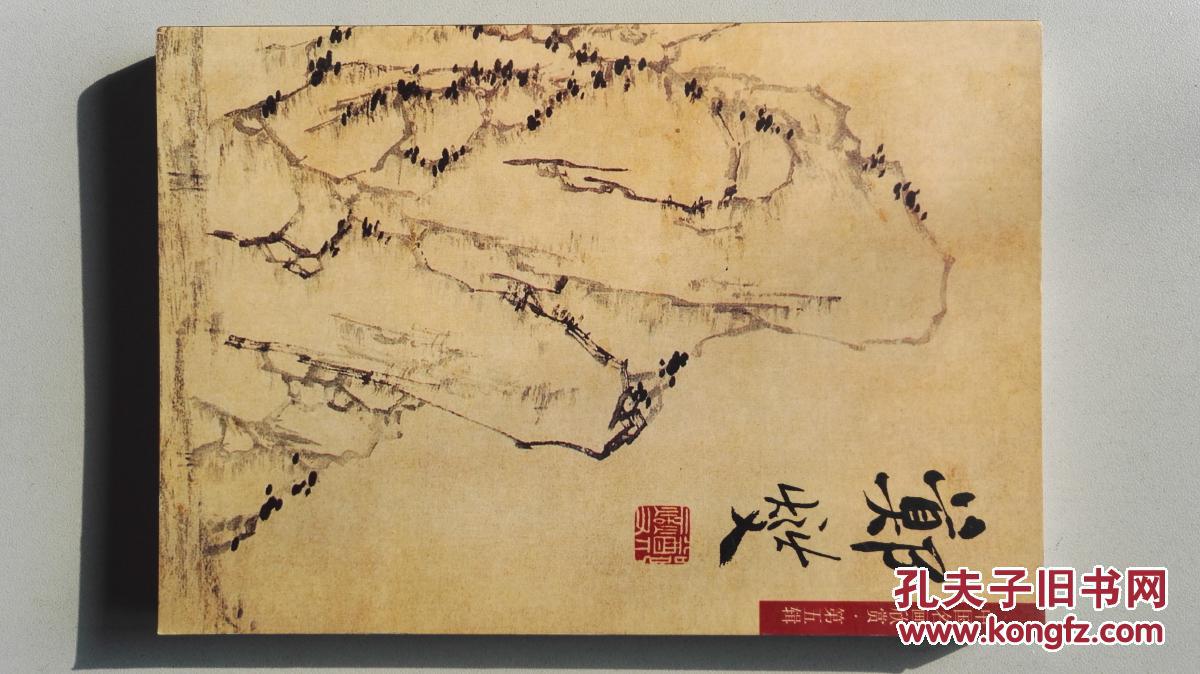 鄭燮
中国名画欣赏·第五辑
孔夫子旧书网
www.kongfz.com